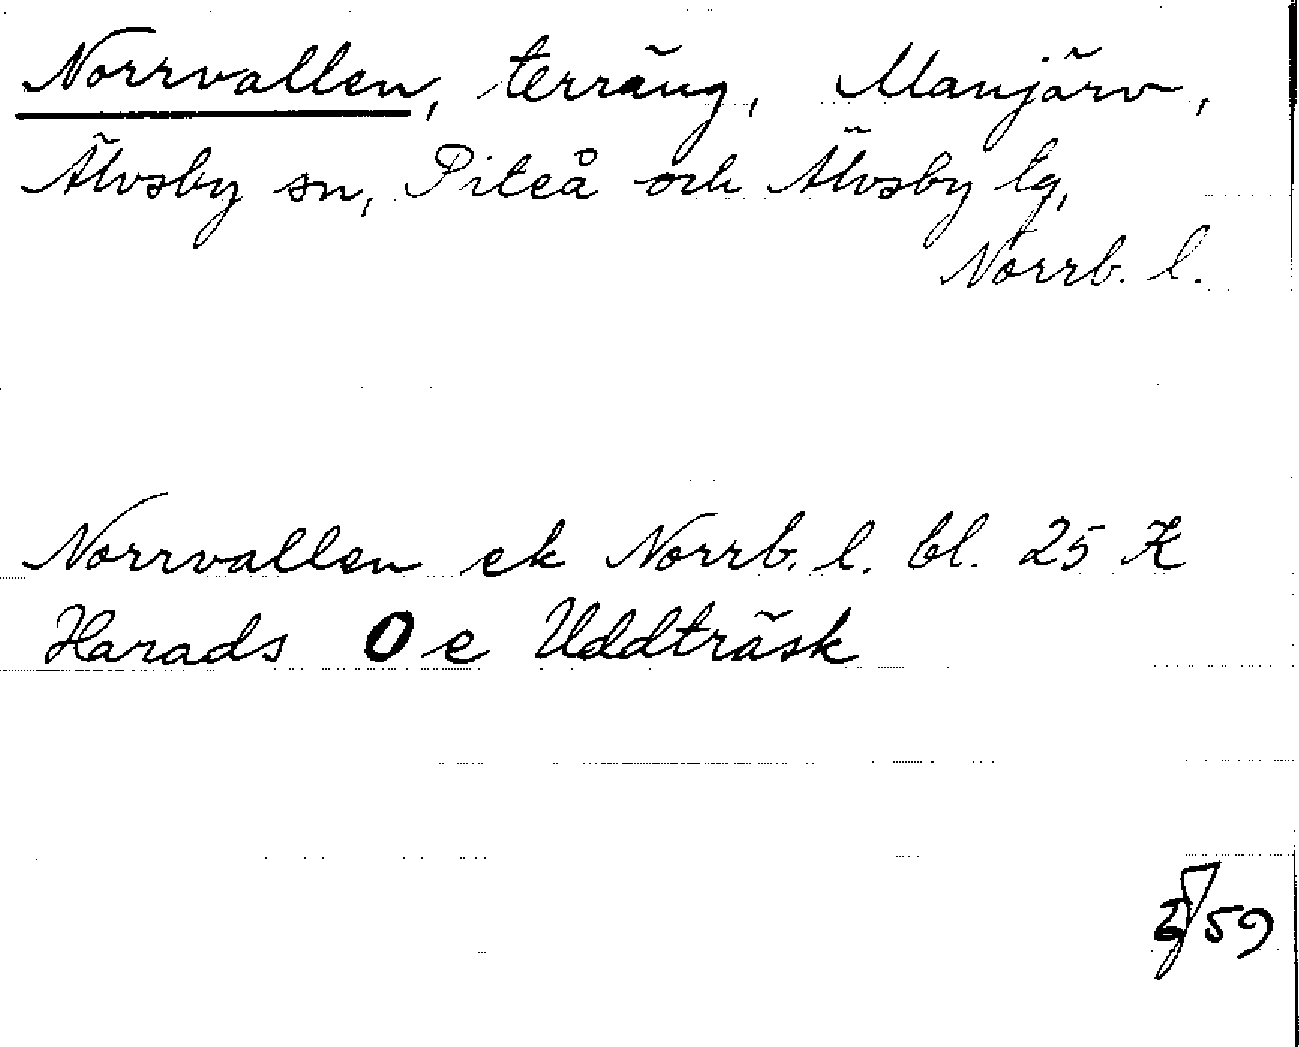 Norrvallen, terräng, Manjärv,
Älvsby sn, Piteå och Älvsby tg,
Norrb. l.
Norrvallen ek Norrb. l. bl. 25 K
Harads O e Uddträsk
59